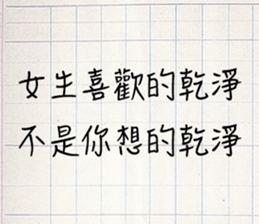 女生喜歡的乾淨
不是你想的乾淨